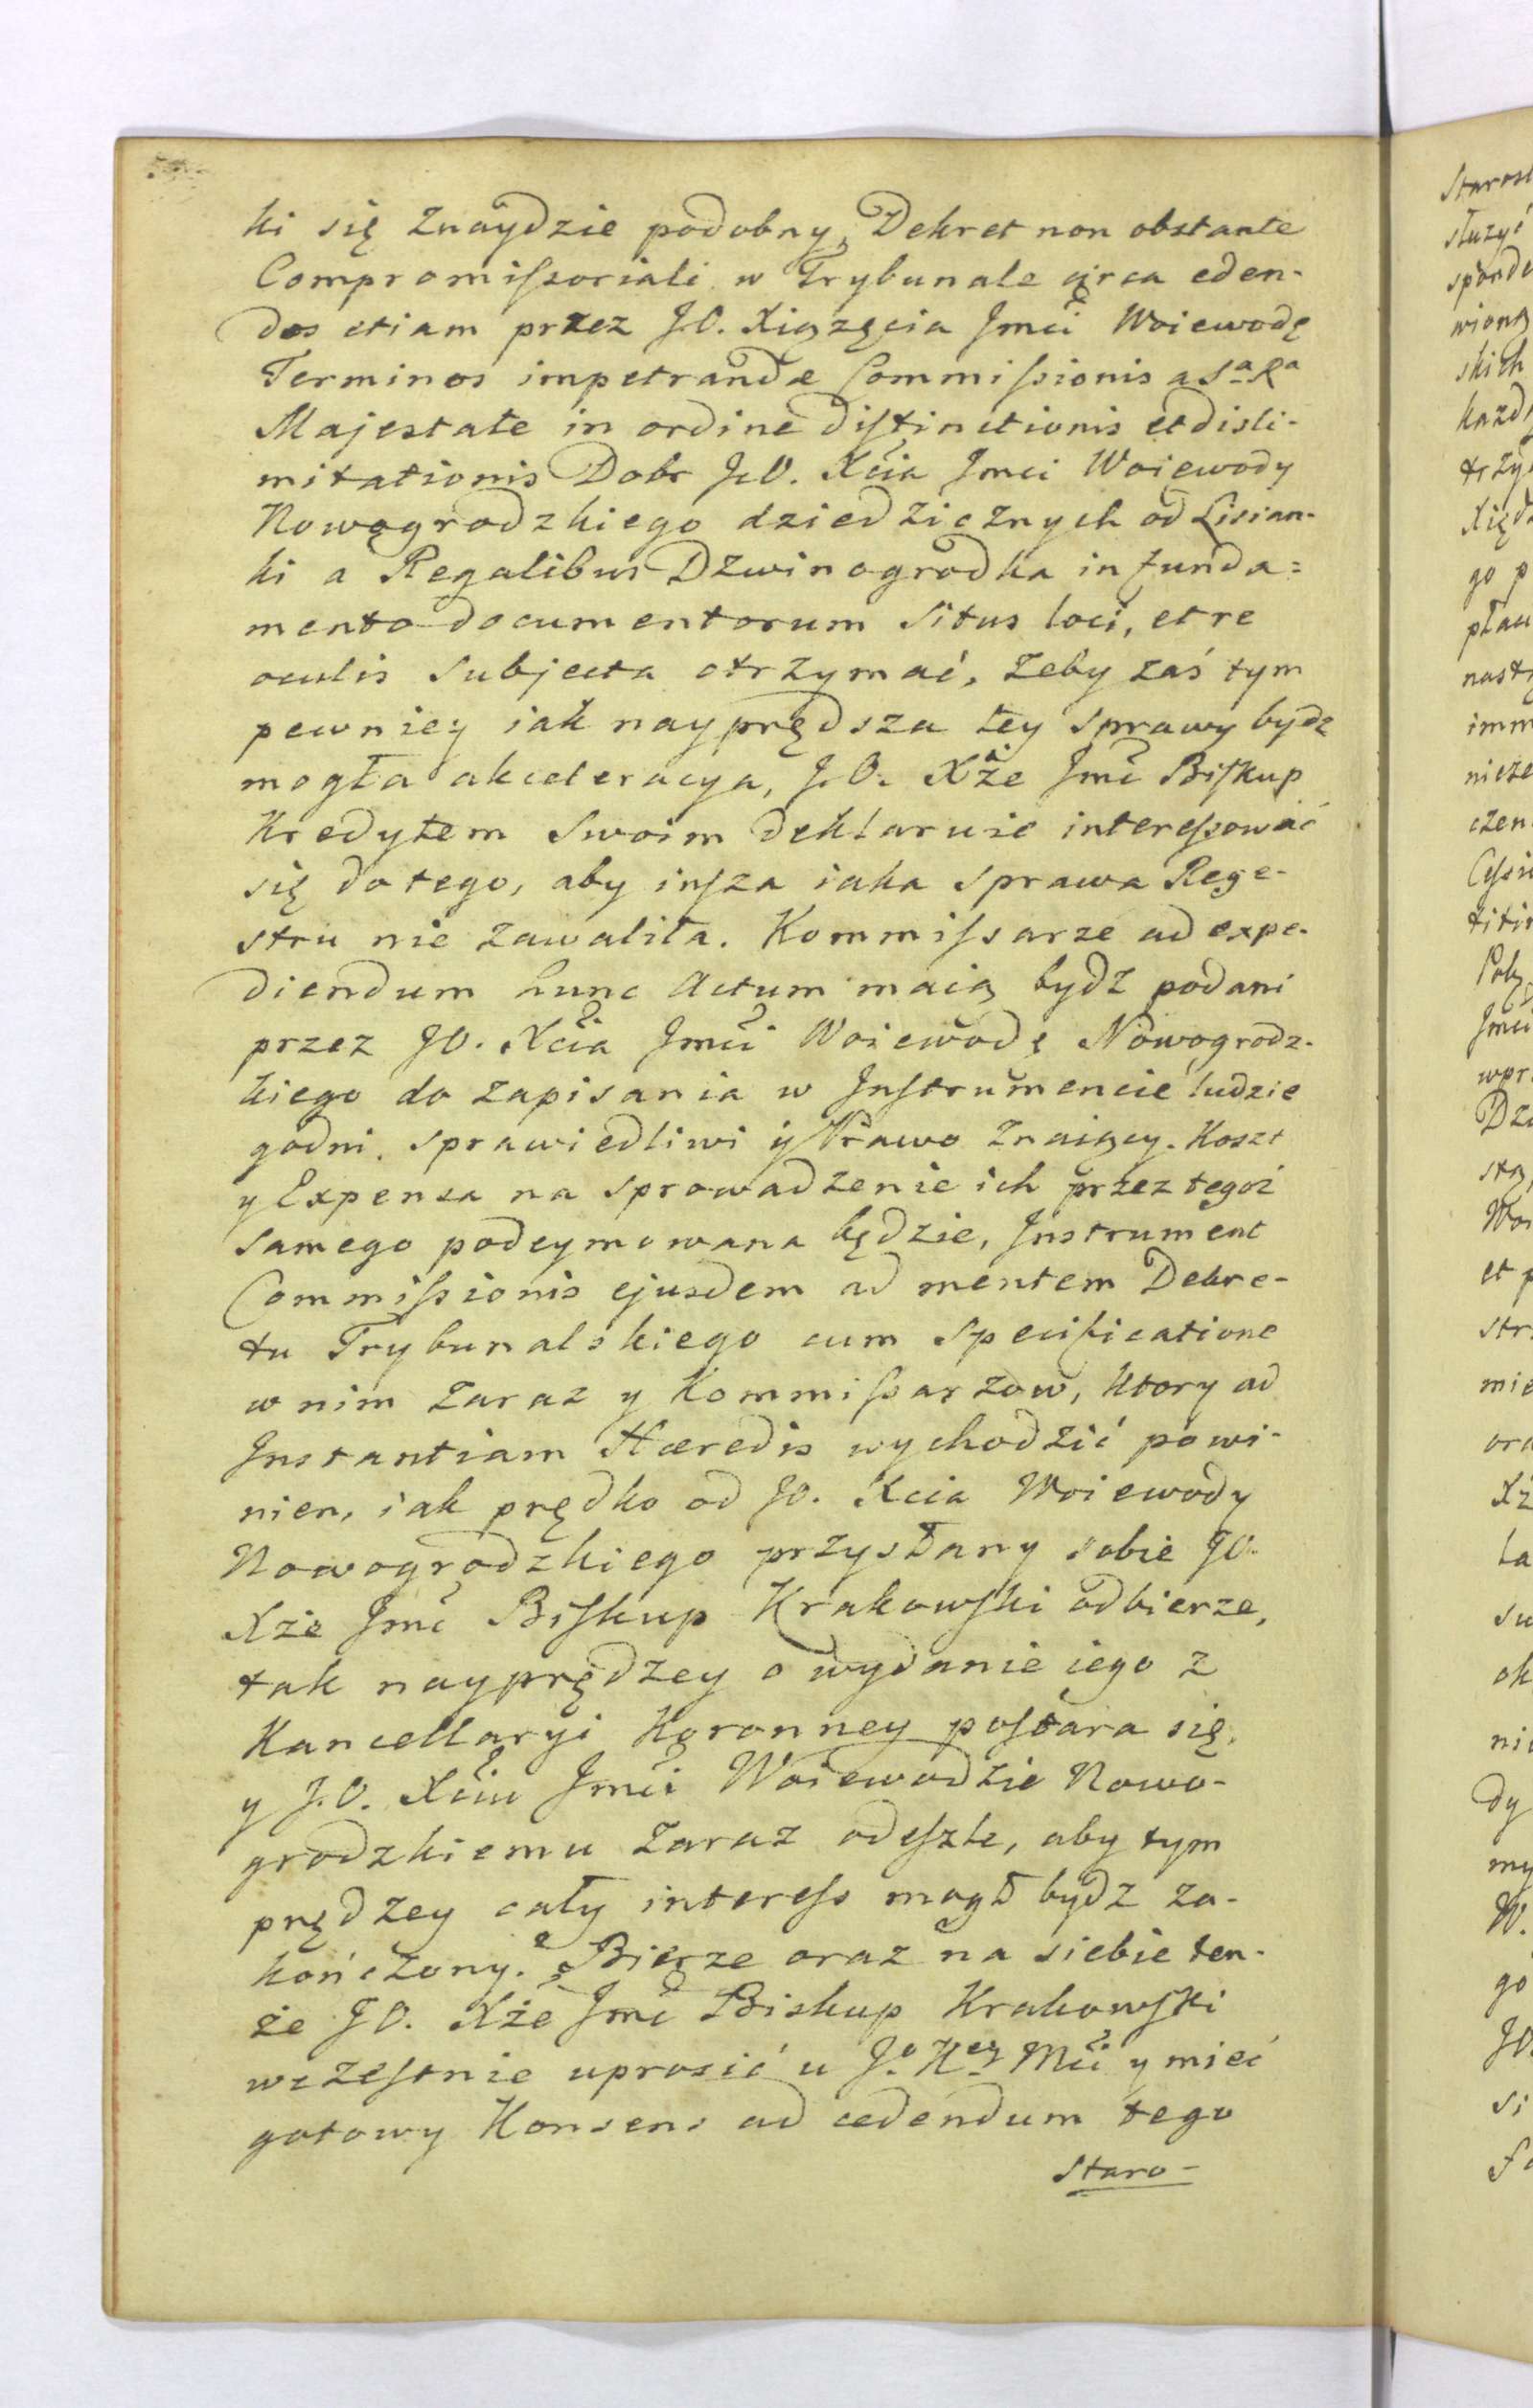 ki się znaydzie podobny, Dekret non obstante
Compromissoriali w Trybunale circa eden-
dos etiam przez J.O. Xiążęcia Jmci Woiewodę
Terminos impetrandæ Commissionis a Sa Ra
Majestate in ordine distinctionis et disli-
mitationis Dobr J.O. Xcia Jmci Woiewody
Nowogrodzkiego dziedzicznych od Lisian-
ki a Regalibus Dzwinogrodka in funda=
mento documentorum situs loci, et re
oculis subjecta otrzymać, żeby zaś tym
pewniey iak nayprędsza tey sprawy bydz
mogła akceleracya, J.O. Xże Jmć Biskup
Kredytem swoim deklaruie interessować
się do tego, aby insza iaka sprawa Rege-
stru nie zawaliła. Kommissarze ad expe-
diendum hunc Actum maią bydź podani
przez JO. Xcia Jmci Woiewodę Nowogrodz-
kiego do zapisania w Instrumencie ludzie
godni, sprawiedliwi y Prawo znaiący. Koszt
y Expensa na sprowadzenie ich przez tegoż
samego podeymowana będzie, Instrument
Commissionis ejusdem ad mentem Dekre-
tu Trybunalskiego cum specificatione
w nim zaraz y Kommissarzow, ktory ad
Instantiam Hæredis wychodzić powi-
nien, iak prędko od JO. Xcia Woiewody
Nowogrodzkiego przysłany sobie JO.
Xże Jmć Biskup Krakowski odbierze,
tak nayprędzey o wydanie iego z
Kancellaryi Koronney postara się,
y J.O. Xciu Jmci Woiewodzie Nowo-
grodzkiemu zaraz odeszle, aby tym
prędzey cały interess mogł bydz za-
kończony. Bierze oraz na siebie ten-
że JO. Xże Jmć Biskup Krakowski
wcześnie uprosić u Jo Key Mci y mieć
gotowy Konsens ad cedendum tego
Staro-